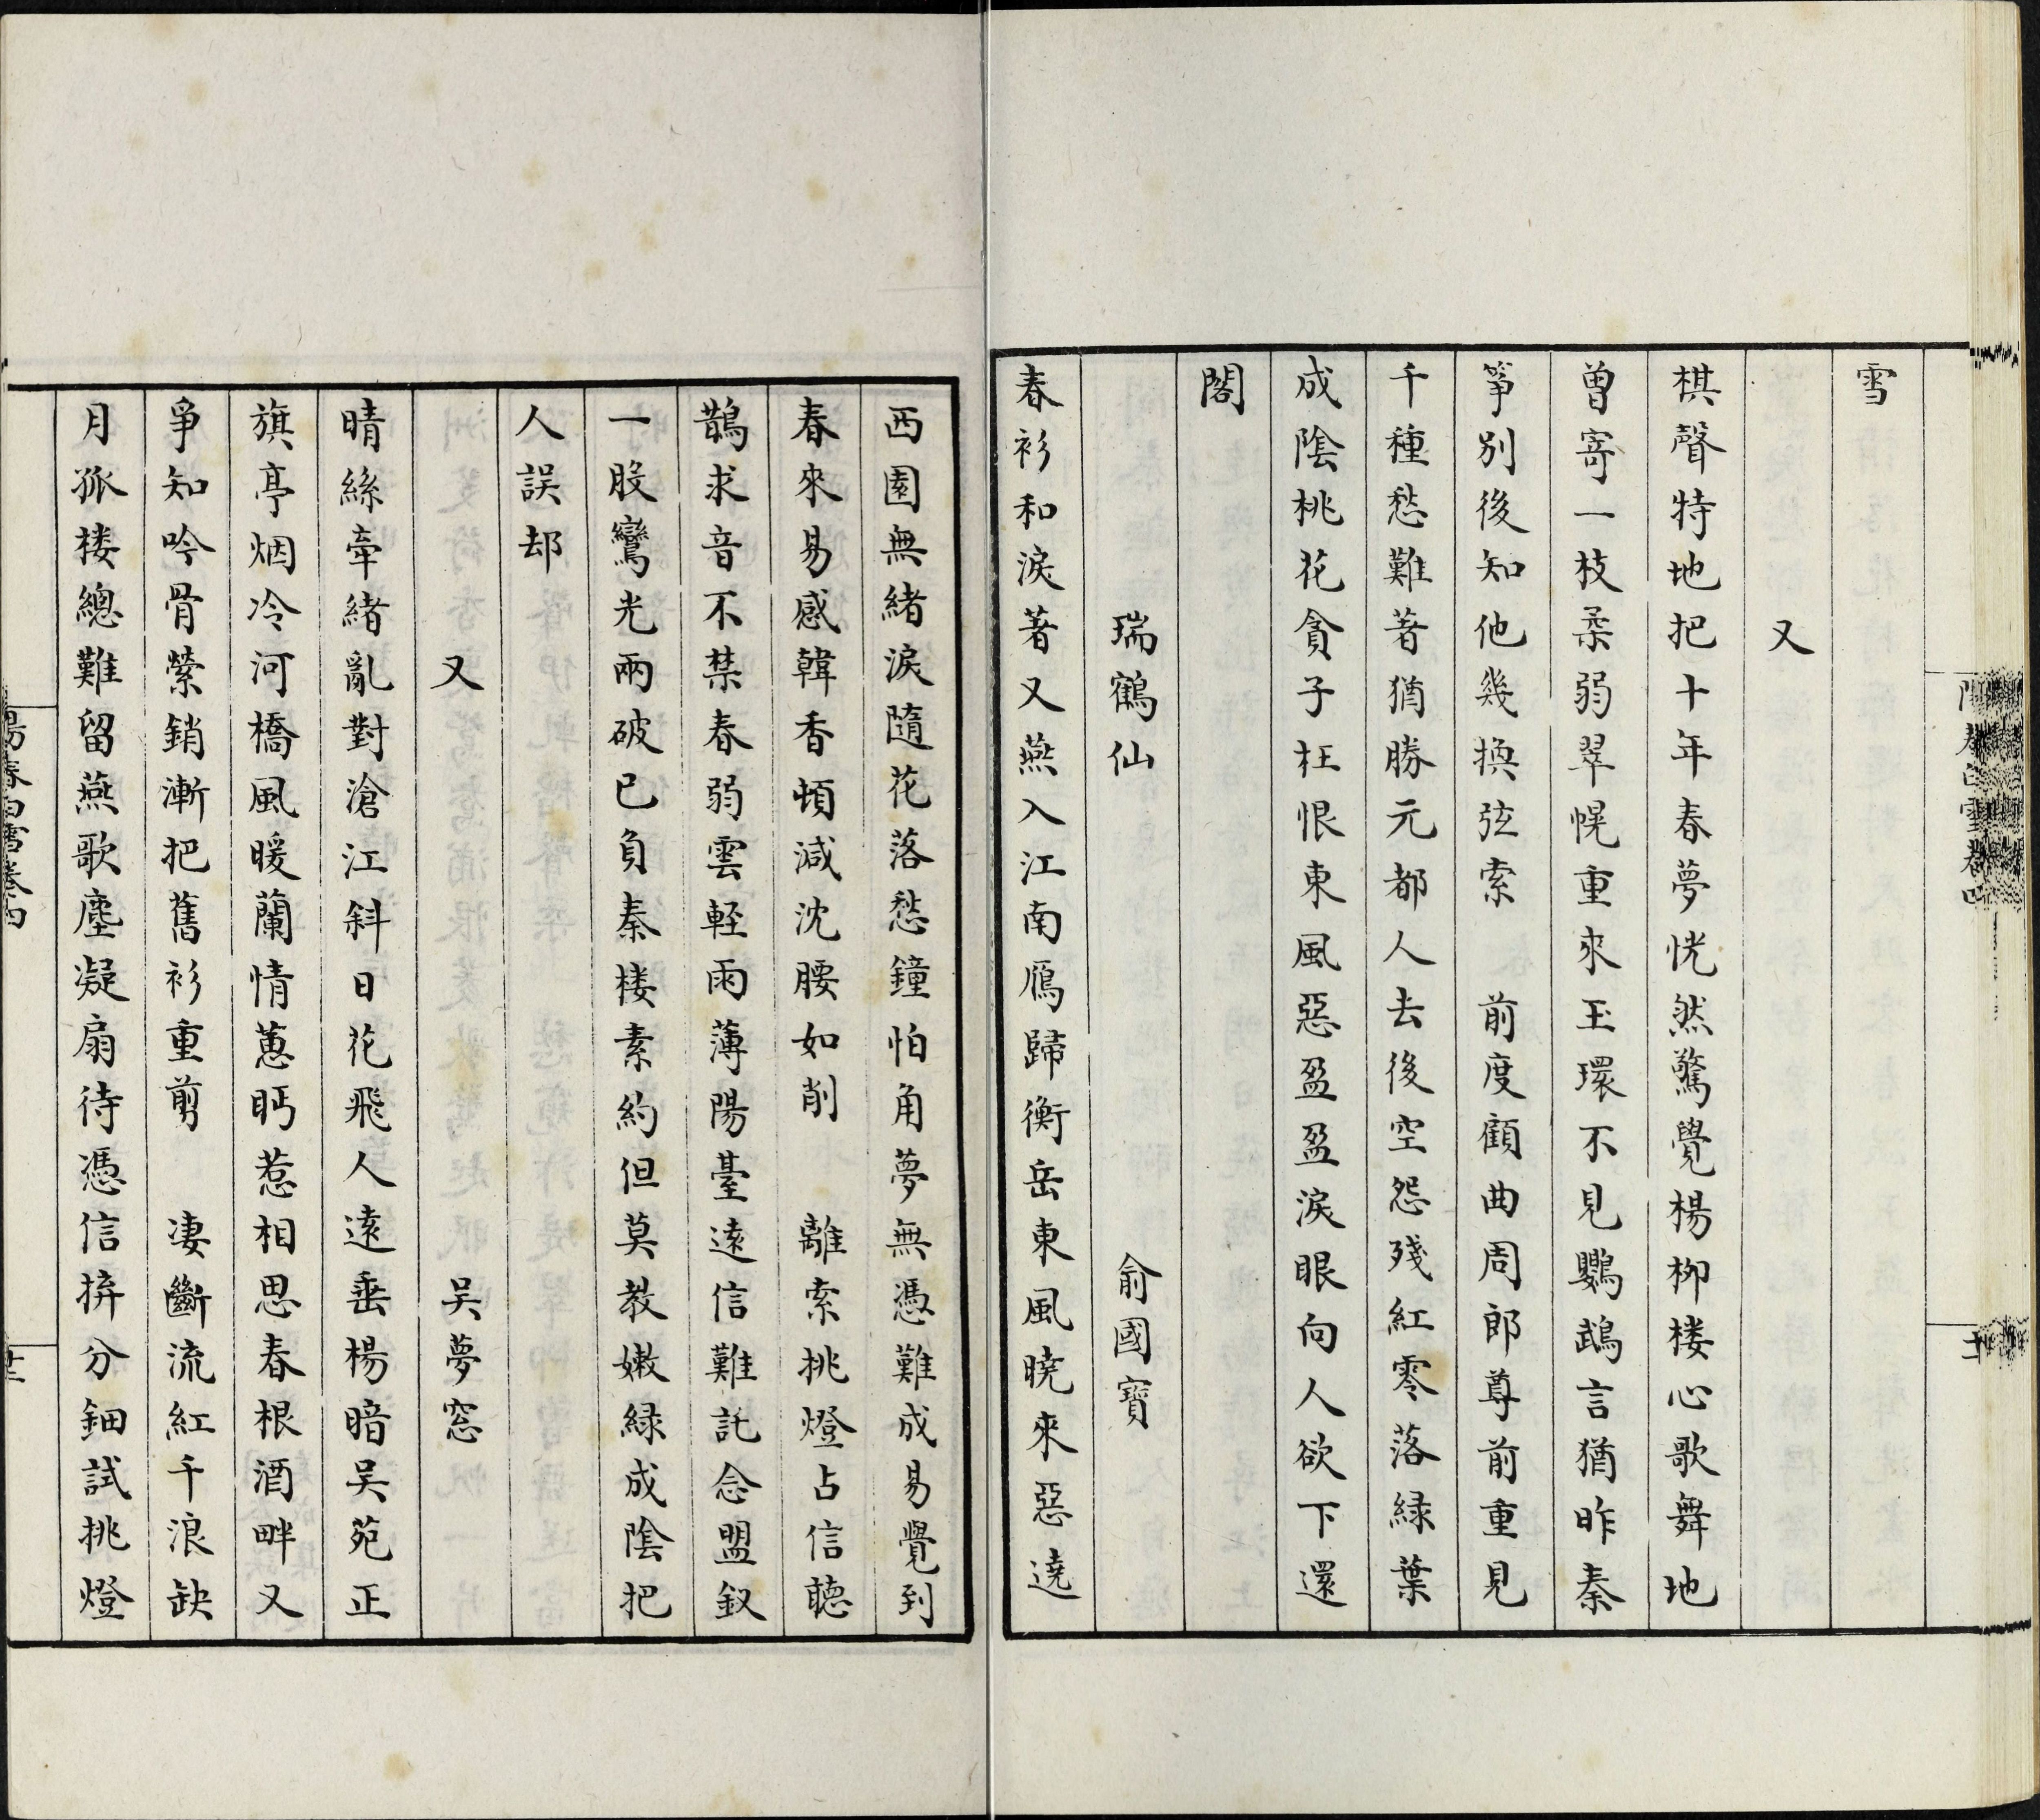 雪
又
棋聲特地把十年春夢恍然驚覺楊柳楼心歌舞地
曾寄一枝柔弱翠幌重來玉環不見鸚鵡言猶昨秦
箏別後知他幾換弦索　前度顧曲周郎尊前重見
千種愁難著猶勝元都人去後空怨殘紅零落緑葉
成陰桃花貪子枉恨東風惡盈盈淚眼向人欲下還
閣
瑞鶴仙　俞國寶
春衫和淚著又燕入江南鴈歸衡岳東風曉來惡遶
西園無緒淚隨花落愁鐘怕角夢無憑難成易覺到
春來易感韓香頓減沈腰如削　離索挑燈占信聽
鵲求音不禁春弱雲輕雨薄陽臺遠信難託念盟釵
一股鸞光兩破已負秦楼素約但莫教嫩緑成陰把
人誤却
又　吴夢窓
晴絲牽緒亂對滄江斜日花飛人遠垂楊暗吴苑正
旗亭烟冷河橋風暖蘭情蕙眄惹相思春根酒畔又
爭知吟骨縈銷漸把舊衫重剪　凄斷流紅千浪缺
月孤楼總難留燕歌塵凝扇待憑信拚分鈿試挑燈
陽春白雪卷四